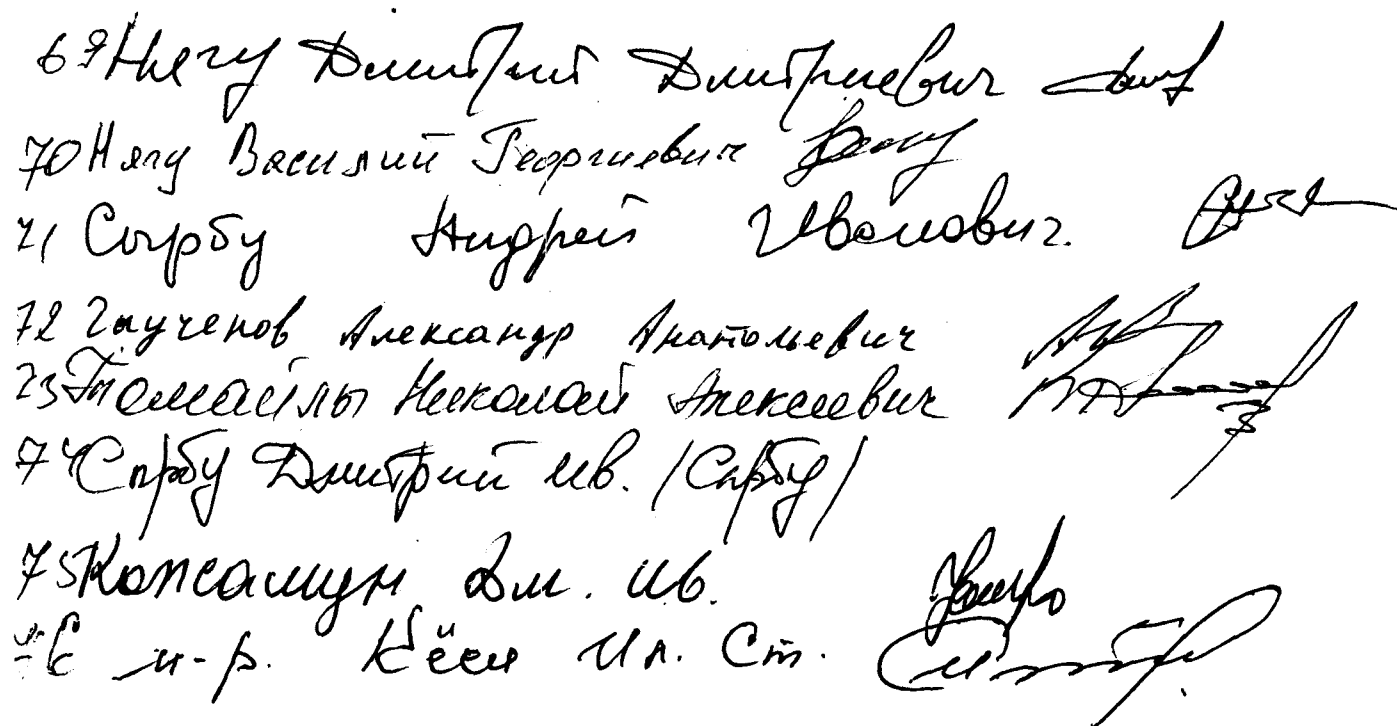 69 Нягу Дмитрий Дмитриевич
70 Нягу Василий Георгиевич
71 Сырбу Андрей Иванович.
72 Глученов Александр Анатольевич
73 Томайлы Николай Алексеевич
74 Сырбу Дмитрий Ив. /Сырбу/
75 Капсамун Дм. Ив.
м-р. Кёся Ил. Ст.